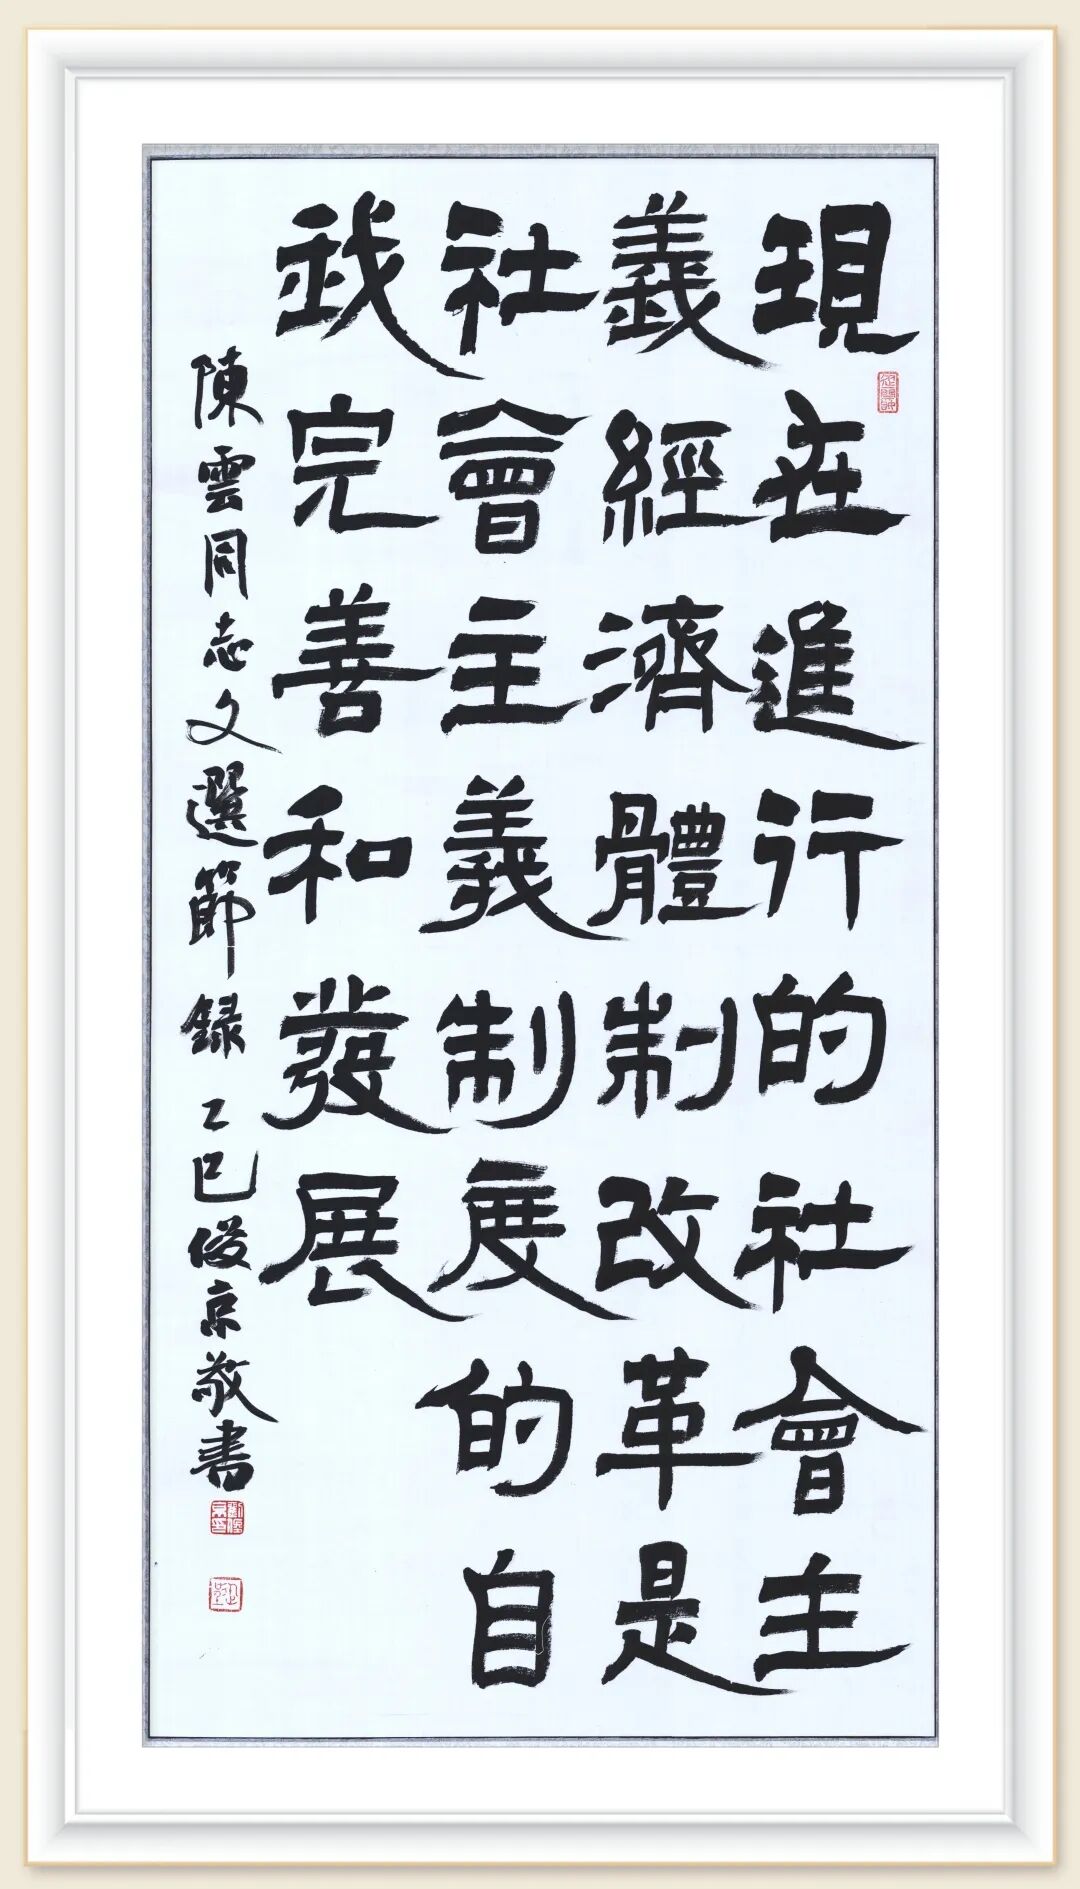 現在進行的社會主
義經濟體制改革是
社會主義制度的自
我完善和發展
陳雲同志文選節錄 乙巳俊京敬書